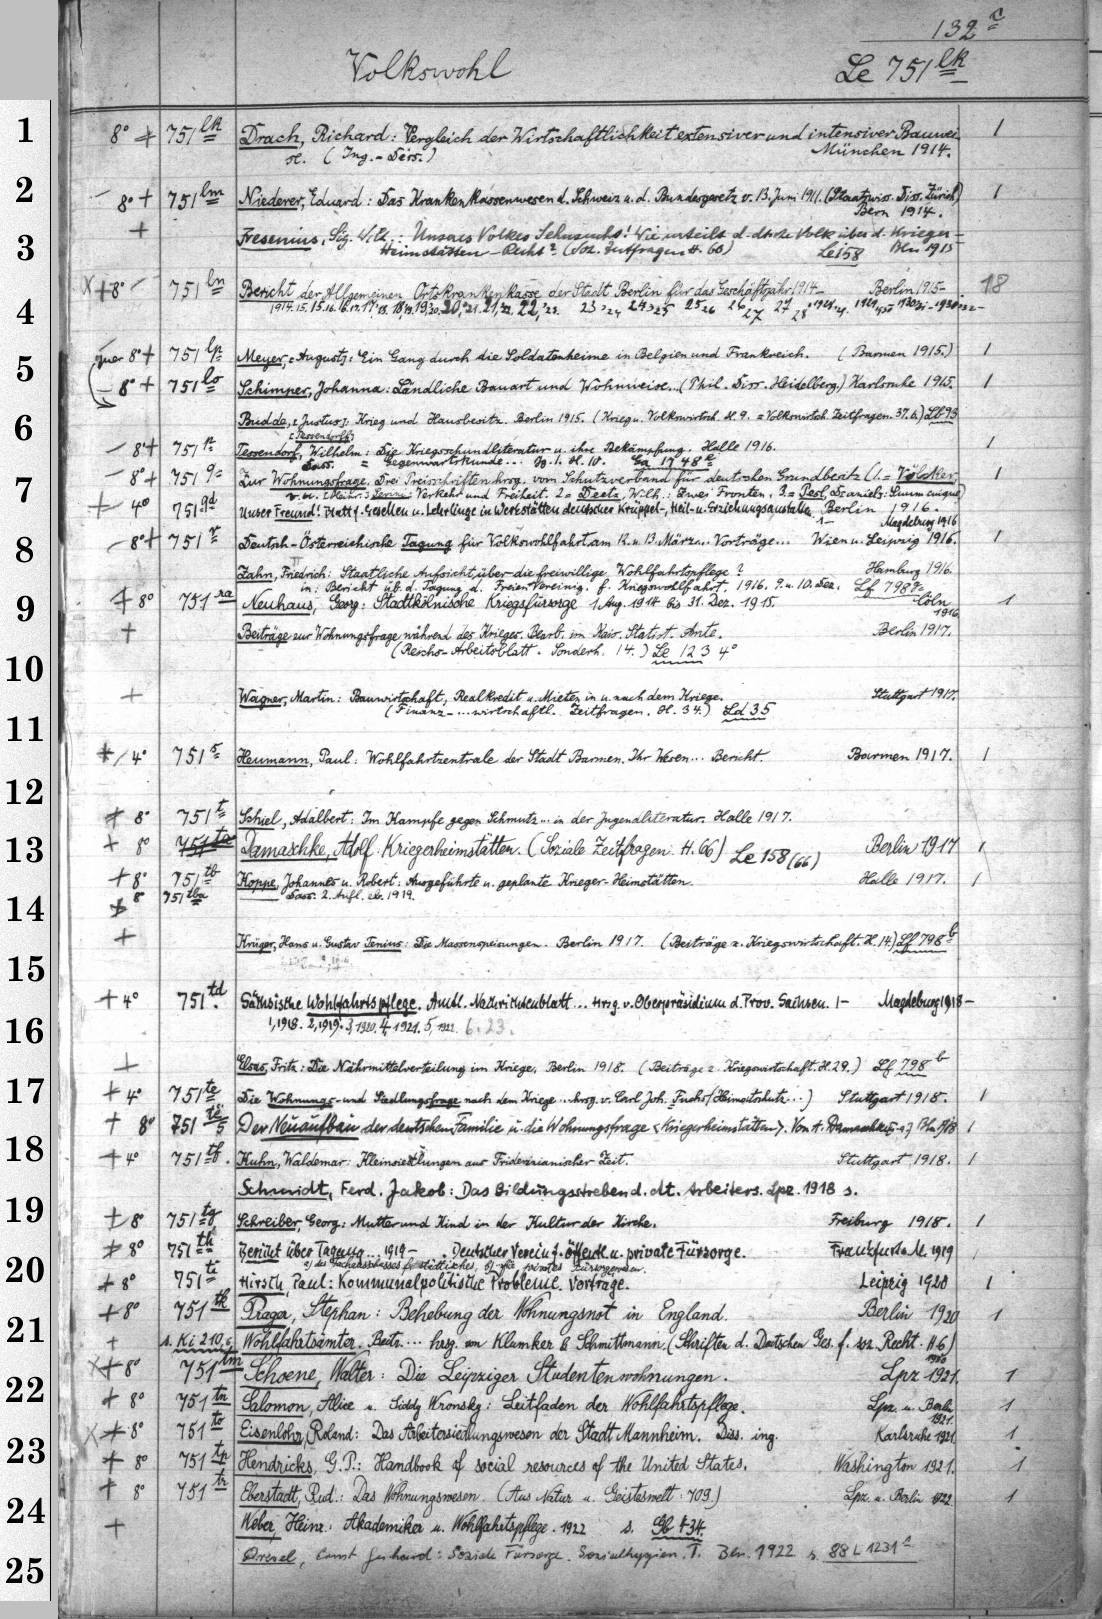 132 r
Volkswohl Le 751 lk
1 8° + 751 lk Drach, Richard: Vergleich der Wirtschaftlichkeit extensiver und intensiver Bauwei 1
se. (Ing.-Diss.) München 1914.
2 8° + 751 lm Niederer, Eduard: Das Krankenkassenwesen d. Schweiz u. d. Bundesgesetz v. 13. Juni 1911. (Staatswiss. Diss. Zürich) 1
Bern 1914.
3 + Fresenius, Sig. Wilh.: Unseres Volkes Sehnsucht! Wie urteilt d. dtsche Volk über d. Krieger-
Heimstätten-Recht? (Soz. Zeitfragen H. 60) Le 158 Bln. 1915
X + 8° 751 ln Bericht der Allgemeinen Ortskrankenkasse der Stadt Berlin für das Geschäftsjahr 1914- Berlin 1915- 18
4
quer 8° + 751 lp Meyer, <August>: Ein Gang durch die Soldatenheime in Belgien und Frankreich. (Barmen 1915.) 1
5
8° + 751 lo Schimper, Johanna: Ländliche Bauart und Wohnweise... (Phil. Diss. Heidelberg.) Karlsruhe 1915. 1
6 Budde, <Justus>: Krieg und Hausbesitz. Berlin 1915. (Krieg u. Volkswirtsch. H. 9. = Volkswirtsch. Zeitfragen. 37.6.) Ld 93
<Tessendorff>
8° + 751 Tessendorf, Wilhelm: Die Kriegsschundliteratur u. ihre Bekämpfung. Halle 1916. 1
Dass. = Gegenwartskunde... Jg. 1. H. 10.
7 8° + 751 q Zur Wohnungsfrage. Drei Preisschriften hrsg. vom Schutzverband für deutschen Grundbesitz (1. = Völcker 1
Verkehr und Freiheit. 2 = Deetz, Wilh.: Zwei Fronten, 3. = Pesl, Daniel: Suum cuique)
+ 4° 751 qd Unser Freund! Blatt f. Gesellen u. Lehrlinge in Werkstätten deutscher Krüppel-, Heil- u. Erziehungsanstalten Berlin 1916.
1- Magdeburg 1916
8 8° + 751 r Deutsch-Österreichische Tagung für Volkswohlfahrt am 12. u. 13. März... Vorträge... Wien u. Leipzig 1916. 1
Zahn, Friedrich: Staatliche Aufsicht über die freiwillige Wohlfahrtspflege? Hamburg 1916.
in: Bericht üb. d. Tagung d. Freien Vereinig. f. Kriegswohlfahrt. 1916. 9. u. 10. Dez. Lf 798
9 + 8° 751 ra Neuhaus, Georg: Stadtkölnische Kriegsfürsorge 1. Aug. 1914 bis 31. Dez. 1915. Cöln 1916 1
+ Beiträge zur Wohnungsfrage während des Krieges. Bearb. im Kais. Statist. Amte. Berlin 1917.
(Reichs-Arbeitsblatt. Sonderh. 14.) Le 123 4°
10
+ Wagner, Martin: Bauwirtschaft, Realkredit u. Mieten in u. nach dem Kriege. Stuttgart 1917.
(Finanz-...wirtschaftl. Zeitfragen. H. 34.) Ld 35
11
4° 751 s Heumann, Paul: Wohlfahrtzentrale der Stadt Barmen. Ihr Wesen... Bericht. Barmen 1917. 1
12
+ 8° 751 t Schiel, Adalbert: Im Kampfe gegen Schmutz... in der Jugendliteratur. Halle 1917.
13 + 8° 751 ta Damaschke, Adolf: Kriegerheimstätten. (Soziale Zeitfragen. H. 66) Le 158 (66) Berlin 1917 1
+ 8° 751 tb Koppe, Johannes u. Robert: Ausgeführte u. geplante Krieger-Heimstätten. Halle 1917. 1
+ 8° 751 tba Dass. 2. Aufl. eb. 1919.
14
+ Krüger, Hans u. Gustav Tenius: Die Massenspeisungen. Berlin 1917. (Beiträge z. Kriegswirtschaft. H. 14.) Lf 798 b
15
+ 4° 751 td Sächsische Wohlfahrtspflege. Amtl. Nachrichtenblatt... Hrsg. v. Oberpräsidium d. Prov. Sachsen. 1- Magdeburg 1918-
1, 1918. 2, 1919. 3, 1920. 4, 1921. 5, 1922. 6. 23.
16
+ Elsas, Fritz: Die Nährmittelverteilung im Kriege. Berlin 1918. (Beiträge z. Kriegswirtschaft. H. 29.) Lf 798 b
17 + 4° 751 te Die Wohnungs- und Siedlungsfrage nach dem Kriege... hrsg. v. Carl Joh. Fuchs (Heimatschutz...) Stuttgart 1918. 1
+ 8° 751 Der Neuaufbau der deutschen Familie u. die Wohnungsfrage <Kriegerheimstätten>. Von A. Damaschke 1
18 + 4° 751 tf. Kuhn, Waldemar: Kleinsiedlungen aus Friderizianischer Zeit. Stuttgart 1918. 1
Schmidt, Ferd. Jakob: Das Bildungsstreben d. dt. Arbeiters. Lpz. 1918 s.
19 + 8° 751 tg Schreiber, Georg: Mutter und Kind in der Kultur der Kirche. Freiburg 1918. 1
+ 8° 751 th Bericht über Tagung... 1919- . Deutscher Verein f. öffentl. u. private Fürsorge. Frankfurt a. M. 1919
20 + 8° 751 ti Hirsch, Paul: Kommunalpolitische Probleme. Vorträge. Leipzig 1920 1
+ 8° 751 tk Prager, Stephan: Behebung der Wohnungsnot in England. Berlin 1920 1
21 + s. Ki 210,6 Wohlfahrtsämter. Beitr.... hrsg. von Klumker & Schmittmann. (Schriften d. Deutschen Ges. f. soz. Recht. H 6) 1920
X + 8° 751 tm Schoene, Walter: Die Leipziger Studentenwohnungen. Lpz 1921. 1
22 + 8° 751 tn Salomon, Alice u. Siddy Wronsky: Leitfaden der Wohlfahrtspflege. Lpz. u. Berlin 1921. 1
X + 8° 751 to Eisenlohr, Roland: Das Arbeitersiedlungswesen der Stadt Mannheim. Diss. ing. Karlsruhe 1921 1
23 + 8° 751 tp Hendricks, G. P.: Handbook of social resources of the United States. Washington 1921. 1
+ 8° 751 tr Eberstadt, Rud.: Das Wohnungswesen. (Aus Natur u. Geisteswelt 709.) Lpz. u. Berlin 1922 1
24 + Weber, Heinr.: Akademiker u. Wohlfahrtspflege. 1922 s.
25 Drexel, Ernst Gerhard: Soziale Fürsorge. Sozialhygien. I. Bln. 1922 s. 88 L 1231